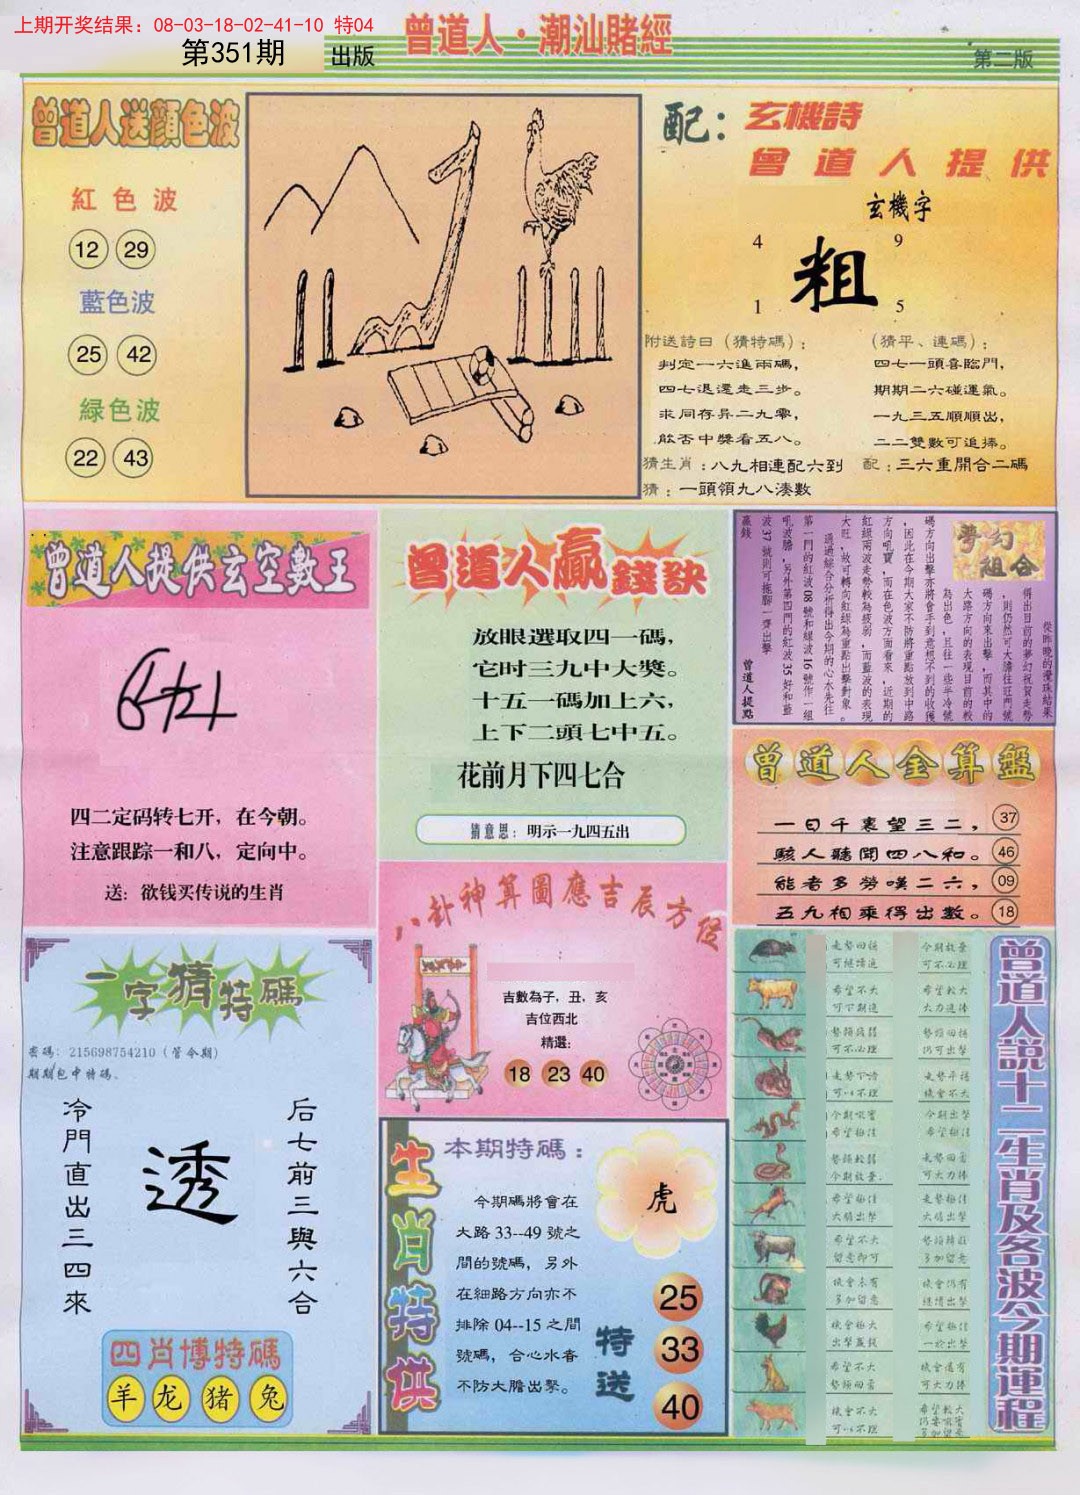 上期开奖结果：08-03-18-02-41-10 特04
第351期 出版
曾道人·潮汕賭經
第二版
曾道人送顔色波
紅色波
12 29
藍色波
25 42
緑色波
22 43
配：玄機詩
曾道人提供
玄機字
4 9
粗
1 5
附送詩曰（猜特碼）：
判定一六進兩碼，
四七退還走三步。
求同存异二九零，
能否中獎看五八。
（猜平、連碼）：
四七一頭喜臨門，
期期二六碰運氣。
一九三五順順出，
二二雙數可追捧。
猜生肖：八九相連配六到
配：三六重開合二碼
猜：一頭領九八湊數
曾道人提供玄空數王
四二定码转七开，在今朝。
注意跟踪一和八，定向中。
送：欲钱买传说的生肖
曾道人贏錢訣
放眼選取四一碼，
它时三九中大獎。
十五一碼加上六，
上下二頭七中五。
花前月下四七合
猜意思：明示一九四五出
夢幻組合
從昨晚的攪珠結果
得出目前的夢幻祝賀走勢
，則仍然可大膽往旺門號
碼方向來出擊，而其中的
大路方向的表現目前的較
為出色，且往一些半冷號
碼方向出擊亦將會手到意想不到的收獲
，因此在今期大家不防將重點放到中路
方向吼寶，而在色波方面看來，近期的
紅綠兩波走勢較為疲弱，而藍波的表現
大旺，故可轉向紅綠為重點出擊對象。
通過綜合分析得出今期的心水先往
第一門的紅波08號和綠波16號作一組
吼波膽，另外第四門的紅波35好和藍
波37號則可拖腳一齊出擊
贏錢
曾道人提點
曾道人金算盤
一日千裏望三二， 37
駭人聽聞四八和。 46
能者多勞嘆二六， 09
五九相乘得出數。 18
八卦神算圖應吉辰方位
吉數為子，丑，亥
吉位西北
精選：
18 23 40
一字猜特碼
密碼：215698754210（管今期）
期期包中特碼、
冷門直出三四來
透
后七前三與六合
四肖博特碼
羊 龙 猪 兔
生肖特供
本期特碼：
今期碼將會在
大路 33--49 號之
間的號碼，另外
在細路方向亦不
排除 04--15 之間
號碼，合心水者
不防大膽出擊。
虎
特送
25
33
40
曾道人說十二生肖及各波今期運程